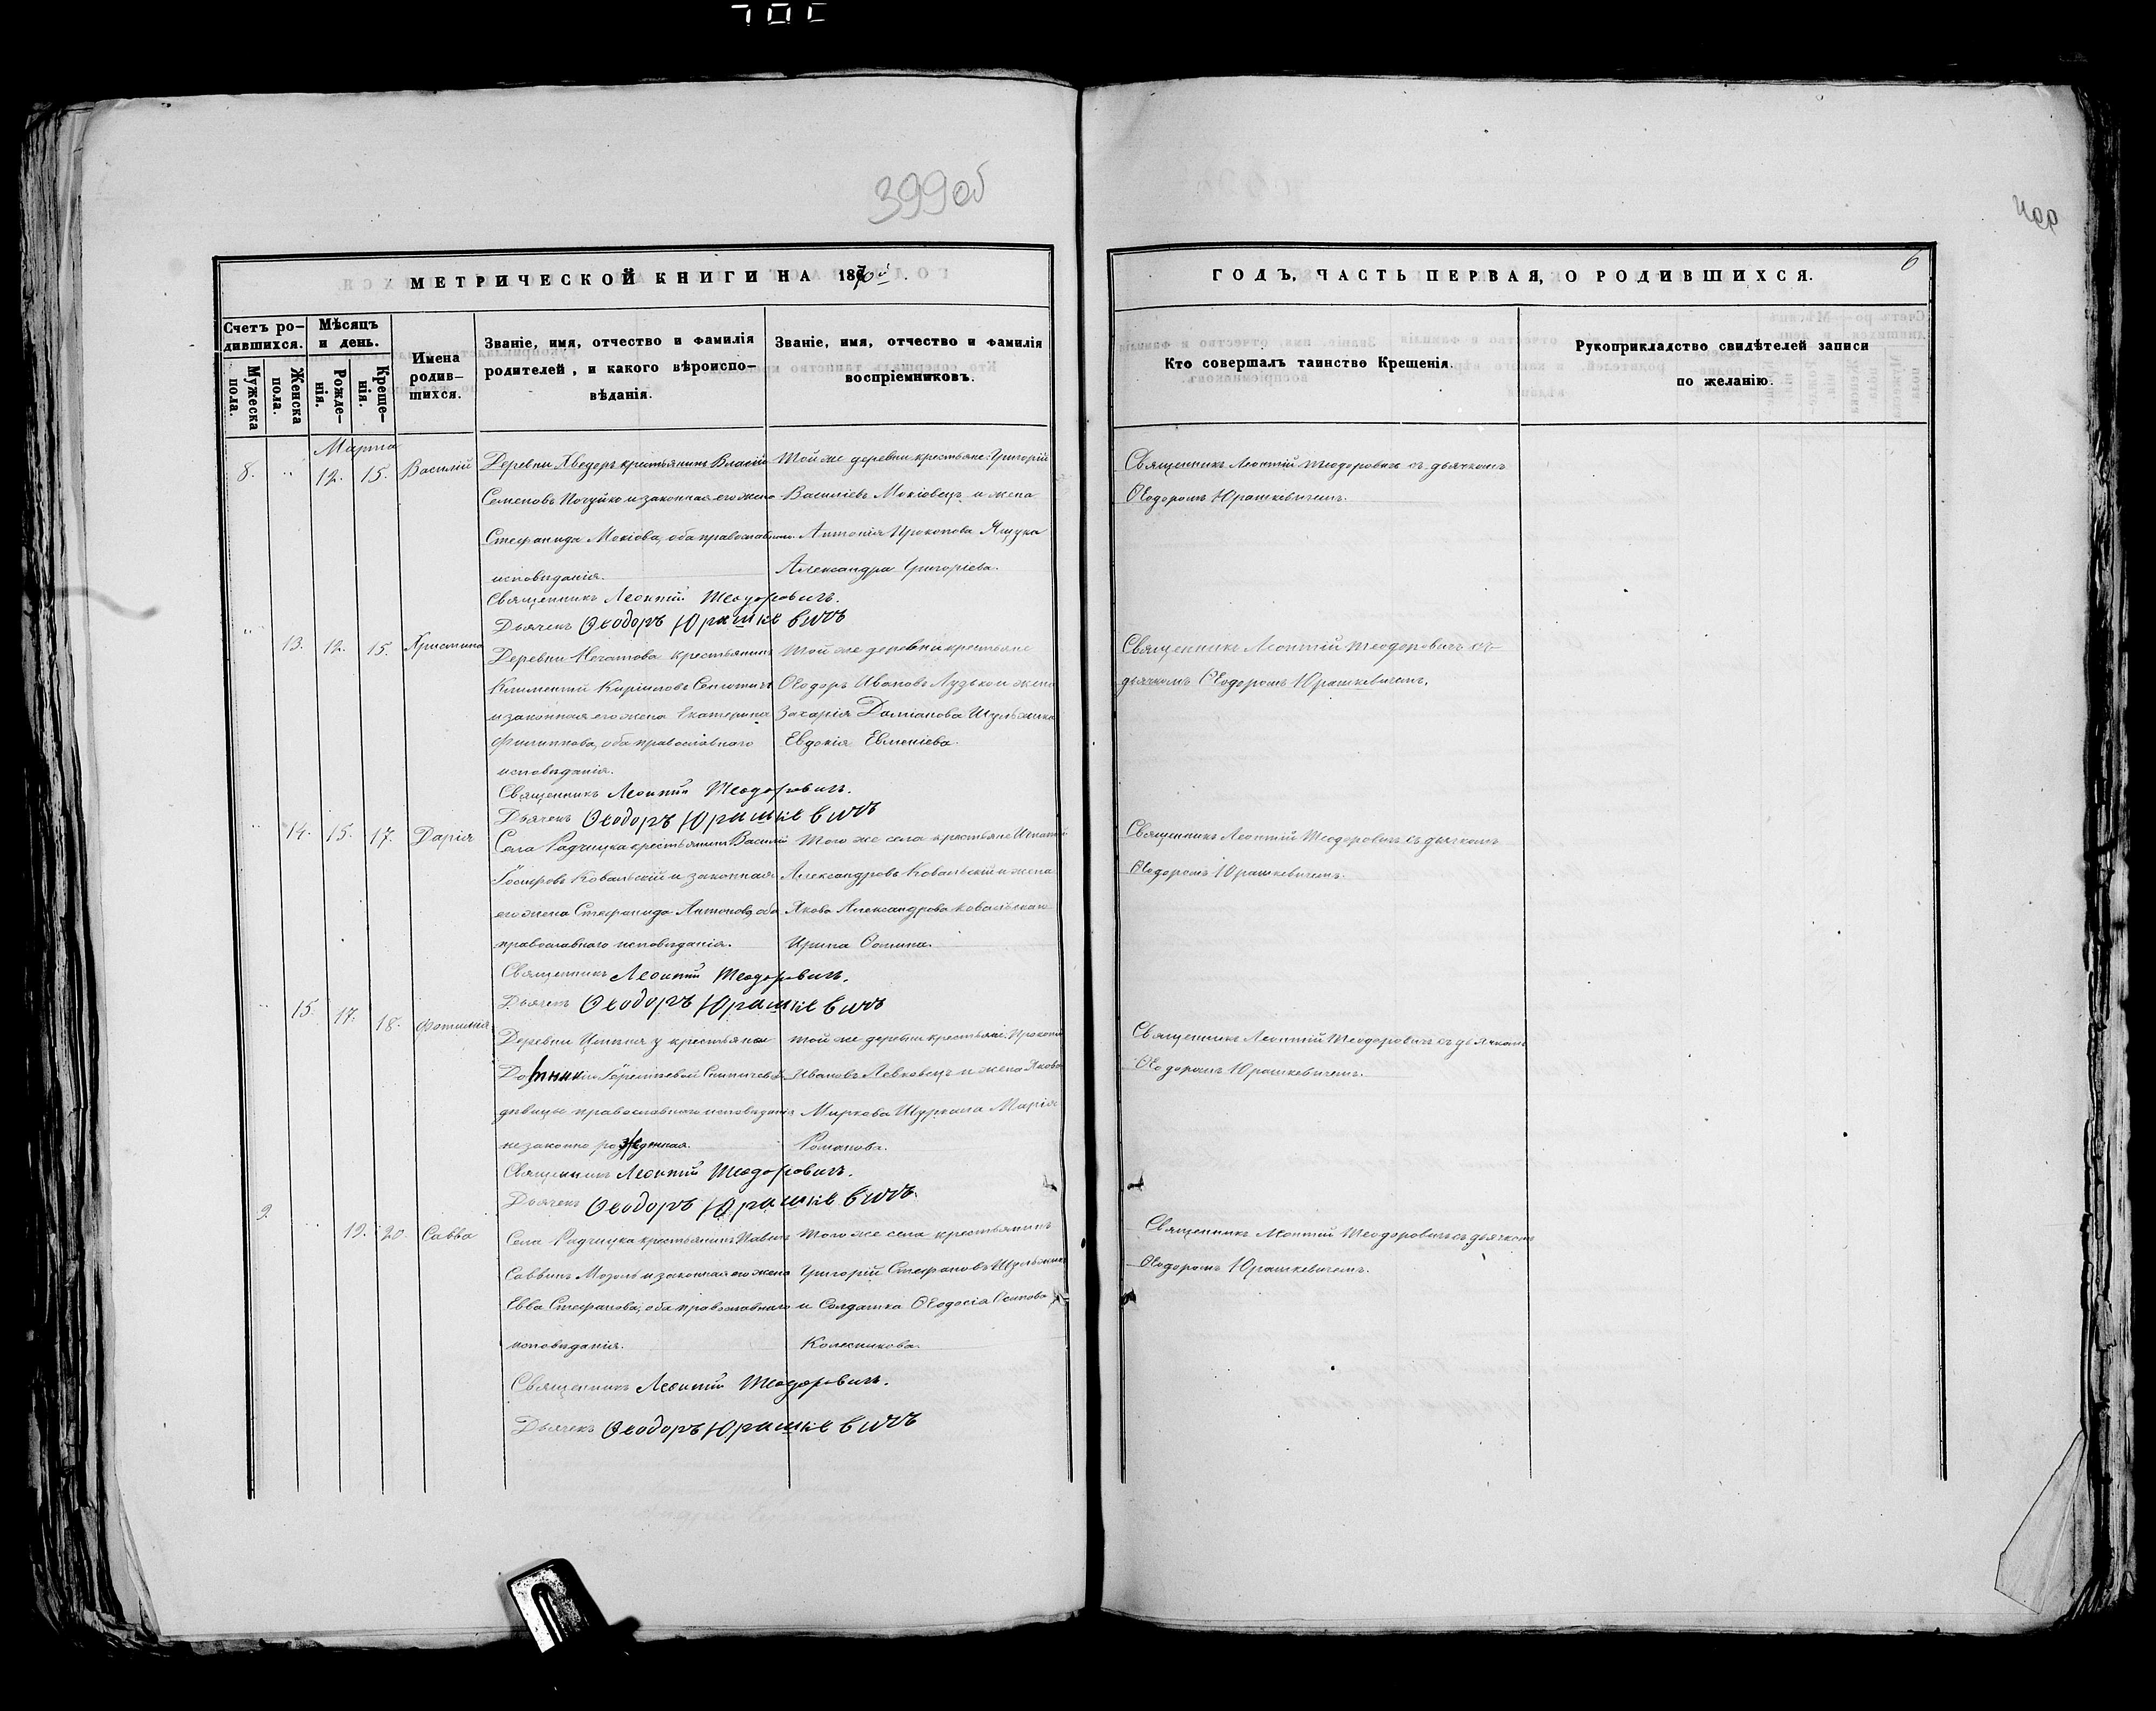 399об
400
МЕТРИЧЕСКОЙ КНИГИ НА 1870й
ГОДЪ, ЧАСТЬ ПЕРВАЯ, О РОДИВШИХСЯ.
6
Счетъ ро-
дившихся.
Мужеска
пола.
Женска
пола.
Мѣсяцъ
и день.
Рожде-
нія.
Креще-
нія.
Имена
родив-
шихся.
Званіе, имя, отчество и фамилія
родителей, и какого вѣроиспо-
вѣданія.
Званіе, имя, отчество и фамилія
воспріемниковъ.
Кто совершалъ таинство Крещенія.
Рукоприкладство свидѣтелей записи
по желанію.
Марта
8. " 12. 15. Василій
Деревни Хведоръ крестьянинъ Власій
Семеновъ и законная его жена
Стефанида Мокіова, оба православнаго
исповѣданія.
Той же деревни крестьяне: Григорій
Василіевъ Мокіовецъ и жена
Антонія Прокопова Ящука
Александра Григоріева.
Священникъ Леонтій Теодоровичъ съ дьячкомъ
Ѳеодоромъ Юрашкевичемъ.
Священникъ Леонтій Теодоровичъ.
Дьячекъ Ѳеодоръ Юрашкевичъ
" 13. 12. 15. Христина
Деревни Нечатова крестьянинъ
Климентій Кириловъ
и законная его жена Екатерина
Филиппова, оба православнаго
исповѣданія.
Той же деревни крестьяне
Ѳеодоръ Ивановъ Лузько и жена
Захарія Даміанова
Евдокія Евменіева.
Священникъ Леонтій Теодоровичъ съ
дьячкомъ Ѳеодоромъ Юрашкевичемъ.
Священникъ Леонтій Теодоровичъ.
Дьячекъ Ѳеодоръ Юрашкевичъ
" 14. 15. 17. Дарія
Села Радчицка крестьянинъ Василій
Іосифовъ Ковальскій и законная
его жена Стефанида Антонова, оба
православнаго исповѣданія.
Того же села крестьяне Игнатій
Александровъ Ковальскій и жена
Якова Александрова Ковальскаго
Ирина Фомина.
Священникъ Леонтій Теодоровичъ съ дьячкомъ
Ѳеодоромъ Юрашкевичемъ.
Священникъ Леонтій Теодоровичъ.
Дьячекъ Ѳеодоръ Юрашкевичъ
" 15. 17. 18. Фотинія
Деревни у крестьянки
дѣвицы православнаго исповѣданія
незаконно рожденная.
той же деревни крестьяне: Прокопій
Ивановъ Левковецъ и жена Якова
Маркова Мария
Романова.
Священникъ Леонтій Теодоровичъ съ дьячкомъ
Ѳеодоромъ Юрашкевичемъ.
Священникъ Леонтій Теодоровичъ.
Дьячекъ Ѳеодоръ Юрашкевичъ.
9. " 19. 20. Савва
Села Радчицка крестьянинъ Павелъ
Саввинъ Мозоль и законная его жена
Евва Стефанова, оба православнаго
исповѣданія.
Того же села крестьянинъ
Григорій Стефановъ
и Солдатка Ѳеодосія Осипова
Колесникова.
Священникъ Леонтій Теодоровичъ съ дьячкомъ
Ѳеодоромъ Юрашкевичемъ.
Священникъ Леонтій Теодоровичъ.
Дьячекъ Ѳеодоръ Юрашкевичъ